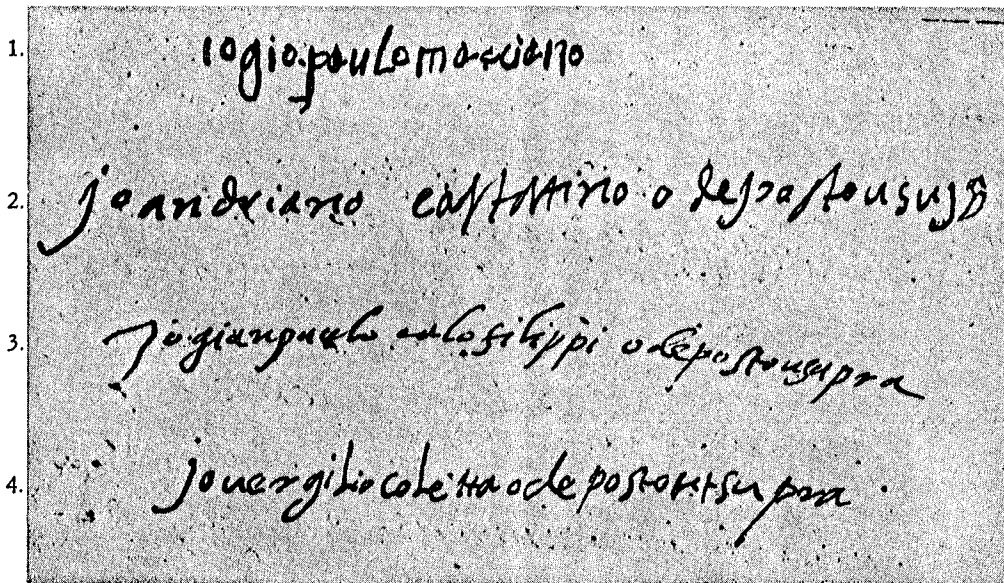 1. io gio. paulo marciano
2. jo andriano castottino o deposto u supª
3. jo gianpaulo calo filippi o deposto u supra
4. jo uergilio coletta o deposto ut supra